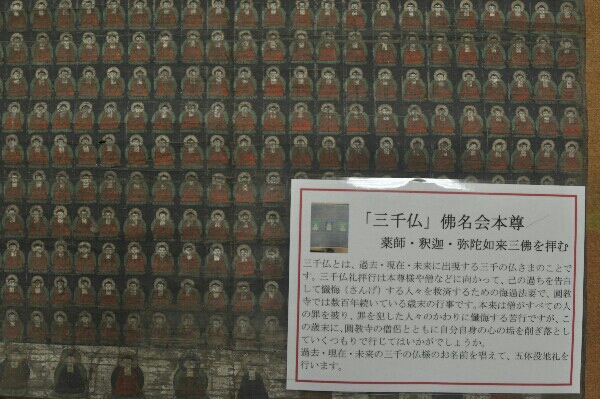 「三千仏」佛名会本尊
薬師・釈迦・弥陀如来三佛を拝む
三千仏とは、過去・現在・未来に出現する三千の仏さまのことで
す。三千仏礼拝行は本尊様や僧などに向かって、己の過ちを告白
して懺悔（さんげ）する人々を救済するための悔過法要で、圓教
寺では数百年続いている歳末の行事です。本来は僧がすべての人
の罪を被り、罪を犯した人々のかわりに懺悔する苦行ですが、こ
の歳末に、圓教寺の僧侶とともに自分自身の心の垢を削ぎ落とし
ていくつもりで行じてはいかがでしょうか。
過去・現在・未来の三千の仏様のお名前を唱えて、五体投地礼を
行います。